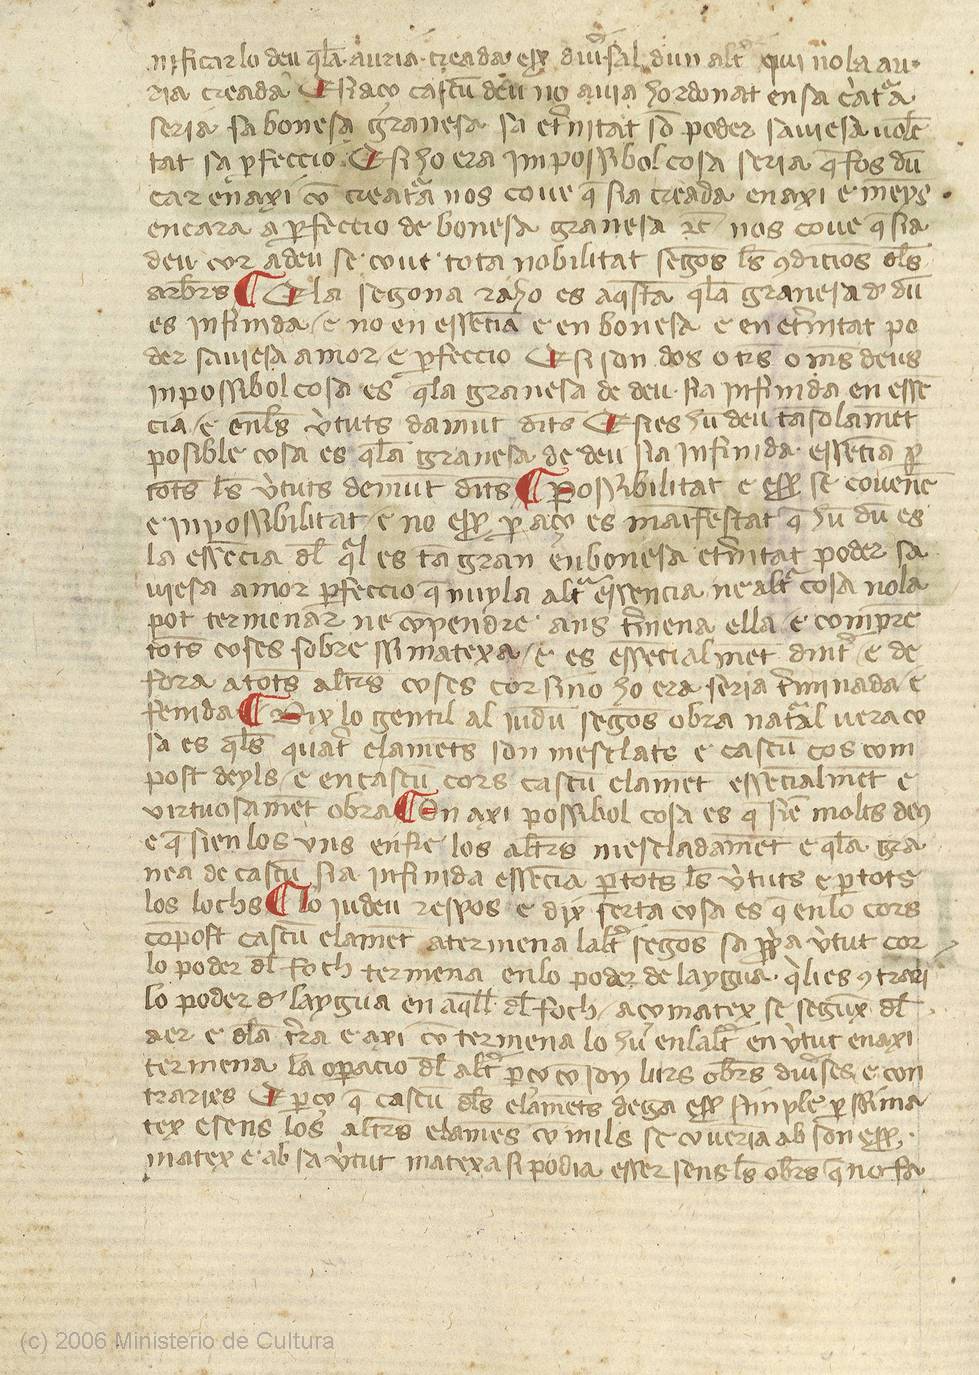 nificar lo deu q̄la auria creada eẜẜ diũsal dun alt̃ qui no la au
ria creada E si aço cascũ deu no auia hordonat en sa c̃at̃a
seria sa bonesa granesa sa et̃nitat sō poder sauiesa uolē
tat sa p̄feccio E si ho era jmpossibol cosa seria q̄ fos dũ
car en axi cō creat̃a nos coue q̄ sia creada en axi e meys
encara a p̄feccio de bonesa granesa ⁊c̄ nos coue q̄ sia
deu cor a deu se coue tota nobilitat segōs l̄s 9dicios dl̄s
arbr̄s E la segona raho es aq̄sta q̄la granesa d̄ dũ
es jnfinida / e no en essēcia e en bonesa e en et̃nitat po
der sauiesa amor / e p̄feccio E si son dos o tr̄s o ms̄ deus
jnpossibol cosa es q̄ la granesa de deu sia jnfinida en essē
cia / e enl̄s v̄tuts damut dits E si es hũ deu tā solamēt
posible cosa es q̄la granesa de deu sia jnfinida essēcia p̄
tots l̄s v̄tuts demut dits Possibilitat e eẜẜ se couenē
e jnpossibilitat / e no eẜẜ p̄ aço es maīfestat q̄ hũ dũ es
la essēcia dl̄ q̄l es ta gran en bonesa et̃nitat poder sa
uiesa amor p̄feccio q̄ nuyla alt̃ essencia ne alt̃ cosa no la
pot termenar ne cōpendre ans t̃mena ella e compre
tots coses sobre ssi matexa / e es essēcialmēt dint̃ / e de
fora a tots altr̄s coses cor si no ho era seria t̃minada / e
fenida Dix lo gentil al judũ segōs obra nat̃al uera co
sa es q̄ls quat̃ elamets son mesclats e cascũ cos com
post deyls / e en cascũ cors cascũ elamet essēcialmēt e
virtuosamēt obra En axi possibol cosa es q̄ siē molts de9
e q̄ sien los vns enfre los altr̄s mescladamēt e q̄la gra
nea de cascũ sia jnfinida essēcia p̄ tots l̄s v̄tuts e p̄ tots
los lochs Lo judeu respos e dix serta cosa es q̄ en lo cors
cōpost cascũ elamēt a termena lalt̃ segōs sa p̄p̃a v̄tut cor
lo poder dl̄ foch termena en lo poder de laygua q̃ li es 9trari
lo poder d̄ laygua en aq̄ll dl̄ foch / aço matex se segux dl̄
aer e dl̄a t̄ra e axi cō termena lo hũ en lalt̃ en v̄tut en axi
termena la op̄acio dl̄ alt̃ p̄ço co son lurs obr̄s diũses e con
traries E p̄ço q̄ cascũ dl̄s elamets dega eẜẜ simple p̄ ssi ma
tex e sens los altr̄s elames co mils se coueria ab son eẜẜ
matex e ab sa v̄tut matexa si podia esser sens l̄s obr̄s q̄ no fa